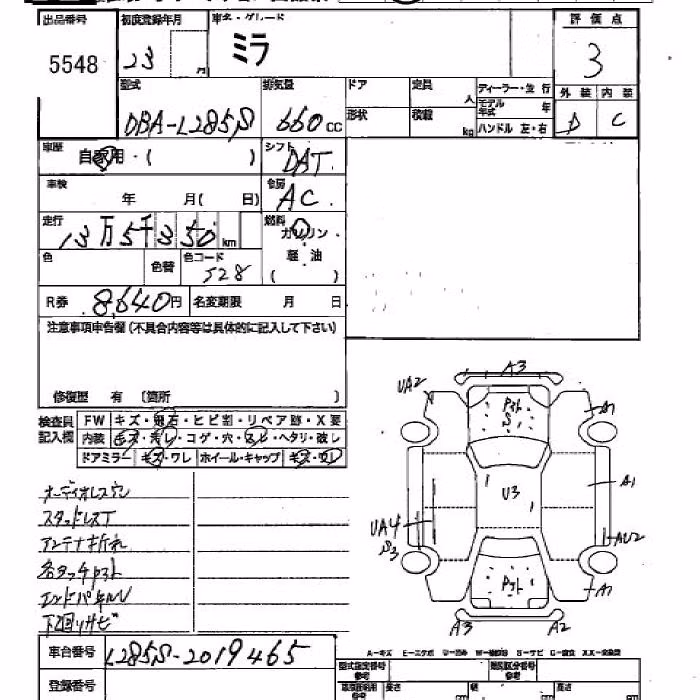 出品番号 初度登録年月 車名・グレード 評価点
5548 23 月 ミラ 3
型式 排気量 ドア 定員 人 ディーラー・並行 外装 内装
DBA-L285S 660cc 形状 積載 kg モデル年式 年 D C
ハンドル 左・右
車歴 自家用・( ) シフト DAT
車検 年 月( 日) 冷房 AC
走行 13万5千350km 燃料 ガソリン・軽油 ( )
色 色替 色コード S28
R券 8,640円 名変期限 月 日
注意事項申告欄(不具合内容等は具体的に記入して下さい)
修復歴 有 〔箇所 〕
検査員記入欄 FW キズ・飛石・ヒビ割・リペア跡・X要
内装 キズ・汚レ・コゲ・穴・スレ・ヘタリ・破レ
ドアミラー キズ・ワレ ホイール・キャップ キズ・ワレ
オーディオレス
スタッドレスT
アンテナ折れ
各タッチ
エンドパネルU
下回りサビ
A3
UA2
A1
U3
A1
UA4
S3
AU2
A1
A3 A2
車台番号 L285S-2019465
登録番号
型式指定番号 参考 類別区分番号 参考
長さ 幅 高さ